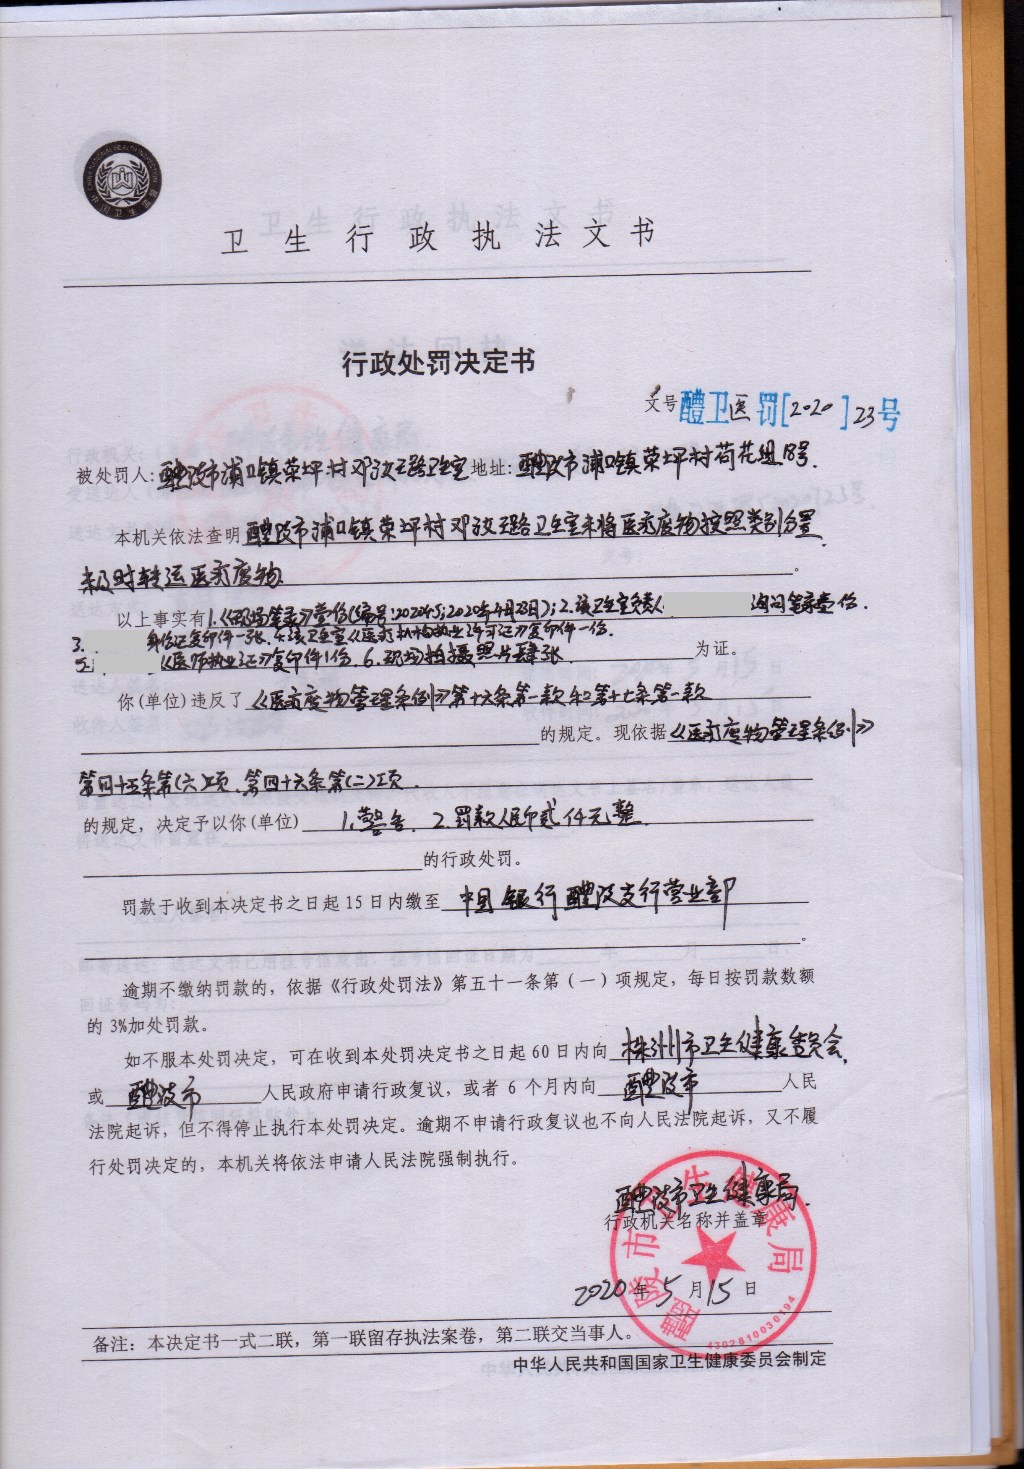 卫生行政执法文书
行政处罚决定书
文号 醴卫医罚[2020]23号
被处罚人:醴陵市浦口镇荣坪村邓孜玉路卫生室 地址:醴陵市浦口镇荣坪村荷花组18号.
本机关依法查明 醴陵市浦口镇荣坪村邓孜玉路卫生室未将医疗废物按照类别分置,
未及时转运医疗废物 。
以上事实有1.《现场笔录》壹份(编号:2020 2020年4月23日);2.该卫生室负责人 询问笔录壹份.
3. 身份证复印件一张、4.该卫生室《医疗机构执业许可证》复印件一份.
5. 《医师执业证》复印件1份、6.现场拍摄照片肆张 为证。
你(单位)违反了 《医疗废物管理条例》第十六条第一款和第十七条第二款
的规定。现依据《医疗废物管理条例》
第四十五条第(六)项、第四十六条第(二)项.
的规定,决定予以你(单位) 1.警告、2.罚款人民币贰仟元整
的行政处罚。
罚款于收到本决定书之日起15日内缴至 中国银行醴陵支行营业部
。
逾期不缴纳罚款的,依据《行政处罚法》第五十一条第(一)项规定,每日按罚款数额
的3%加处罚款。
如不服本处罚决定,可在收到本处罚决定书之日起60日内向 株洲市卫生健康委员会,
或 醴陵市 人民政府申请行政复议,或者6个月内向 醴陵市 人民
法院起诉,但不得停止执行本处罚决定。逾期不申请行政复议也不向人民法院起诉,又不履
行处罚决定的,本机关将依法申请人民法院强制执行。
醴陵市卫生健康局.
行政机关名称并盖章
醴陵市卫生健康局
4302810030194
2020年5月15日
备注:本决定书一式二联,第一联留存执法案卷,第二联交当事人。
中华人民共和国国家卫生健康委员会制定